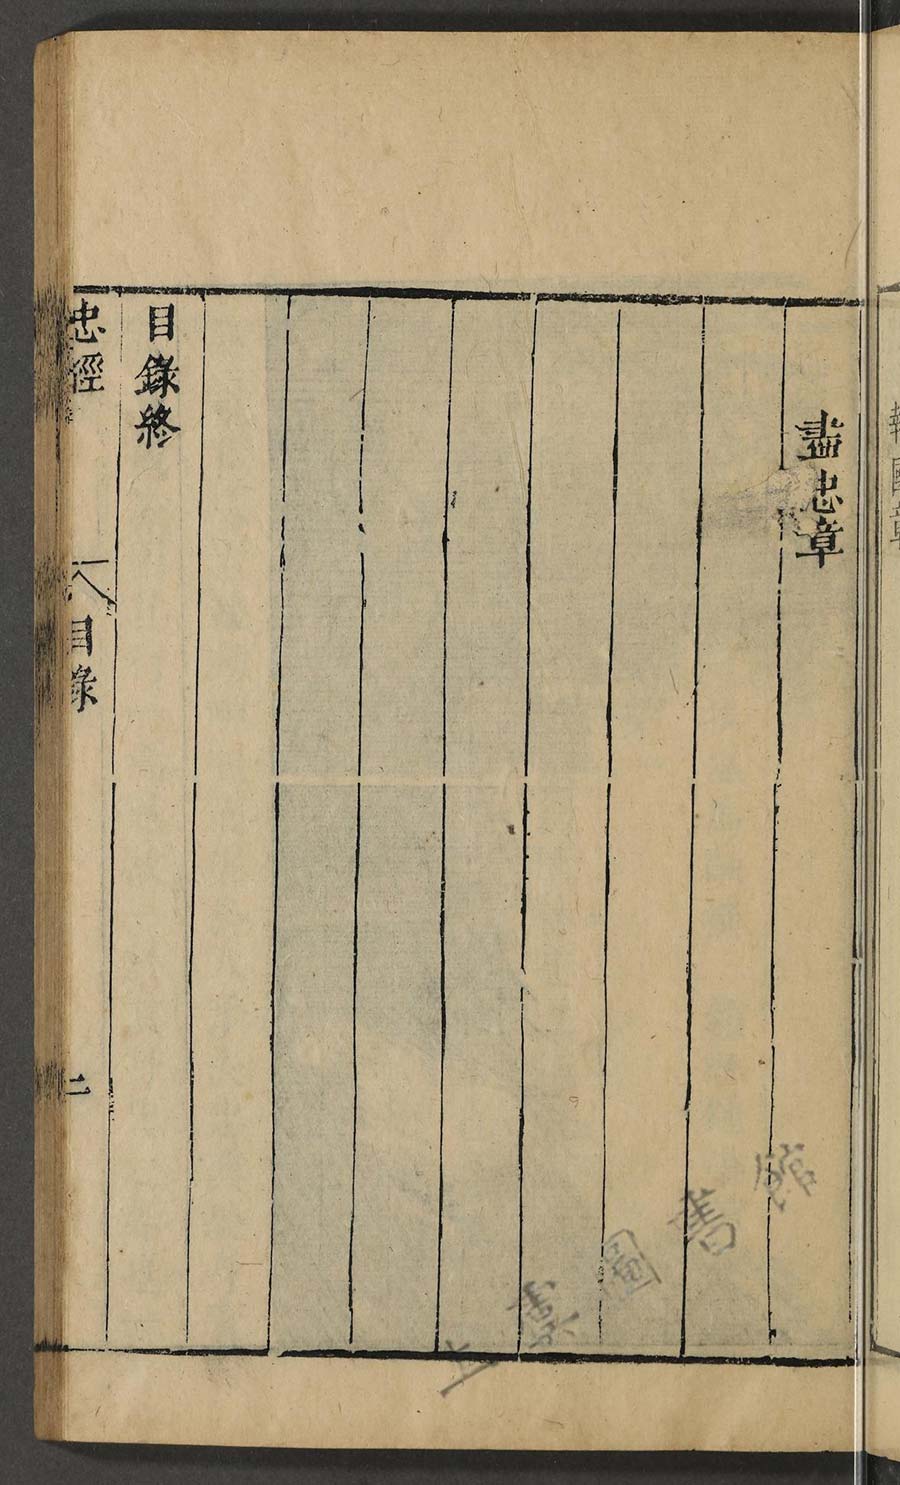 報國章
盡忠章
目錄終
忠經
目錄
二
圖書館